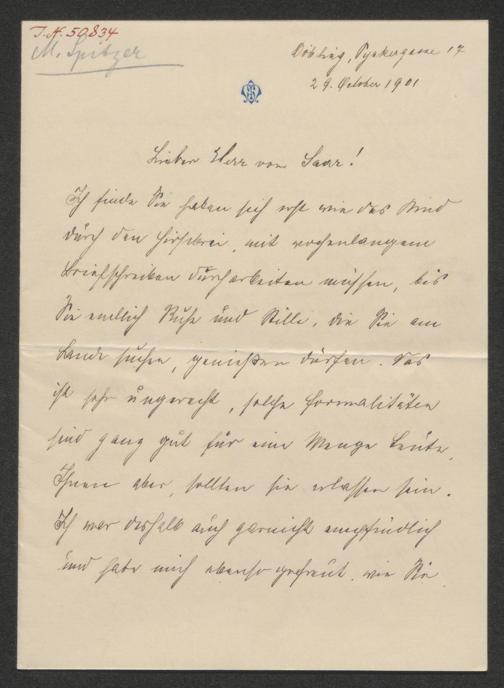 I. N. 50834
M. Spitzer
Döbling, Pyrkergasse 17
29. October 1901
Lieber Herr von Saar!
Ich finde Sie haben sich erst wie das Kind
durch den Hirsebrei, mit wochenlangem
Briefschreiben durcharbeiten müssen, bis
Sie endlich Ruhe und Stille, die Sie am
Lande suchen, genießen dürfen. Das
ist sehr ungerecht, solche Formalitäten
sind ganz gut für eine Menge Leute,
Ihnen aber, sollten sie erlassen sein.
Ich war deshalb auch garnicht empfindlich
und habe mich ebenso gefreut, wie Sie